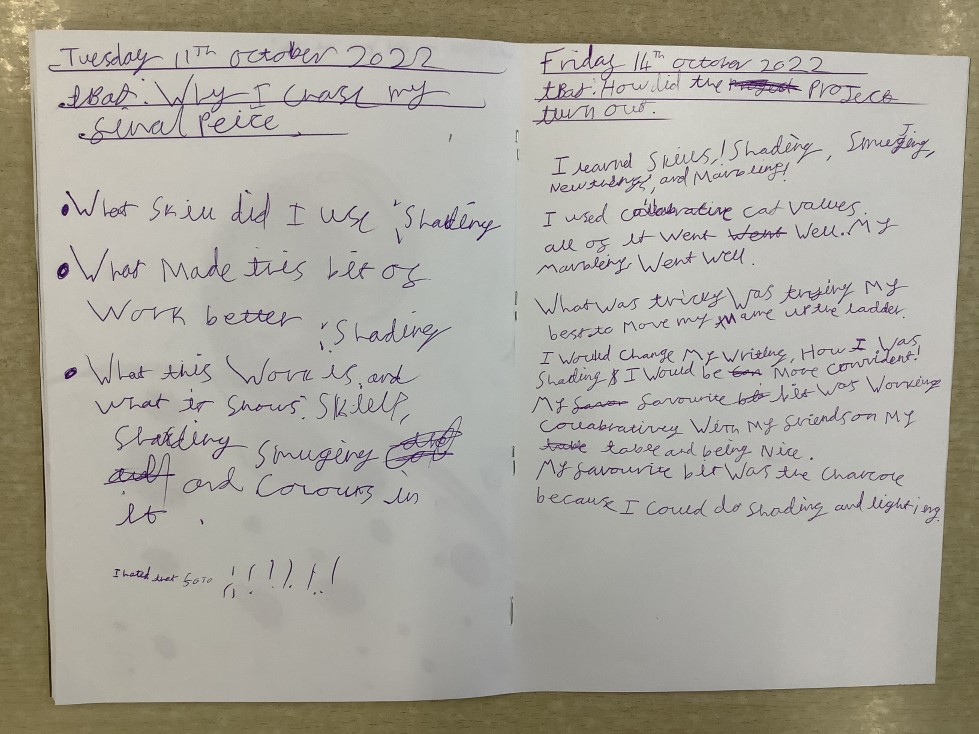 Tuesday 11th october 2022
tBat: Why I chose my
final Peice.
• What Skill did I use ; Shading
• What Made this bit of
Work better ; Shading
• What this Work is, and
what it shows. Skill,
Shading Smuging
and Colours in
it.
I hated that
Friday 14th october 2022
tBat: How did the Project
turn out.
I learnd Skills,! Shading, Smuging,
New things, and Marbling!
I used collabrative cat values.
all of it Went Went Well. My
Marbling Went Well.
What Was tricky Was trying My
best to Move my Name up the ladder.
I Would Change My Writing, How I Was
Shading & I Would be More convident!
My favourite bit Was Working
Collabrativey With My friends on My
table table and being Nice.
My favourite bit Was the Charcole
because I Could do Shading and lighting.